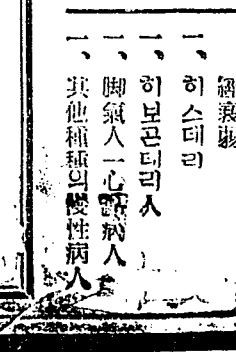 經衰弱
一、히스테리
一、히보곤데리人
一、脚氣人一心臟病人
一、其他種種의慢性病人